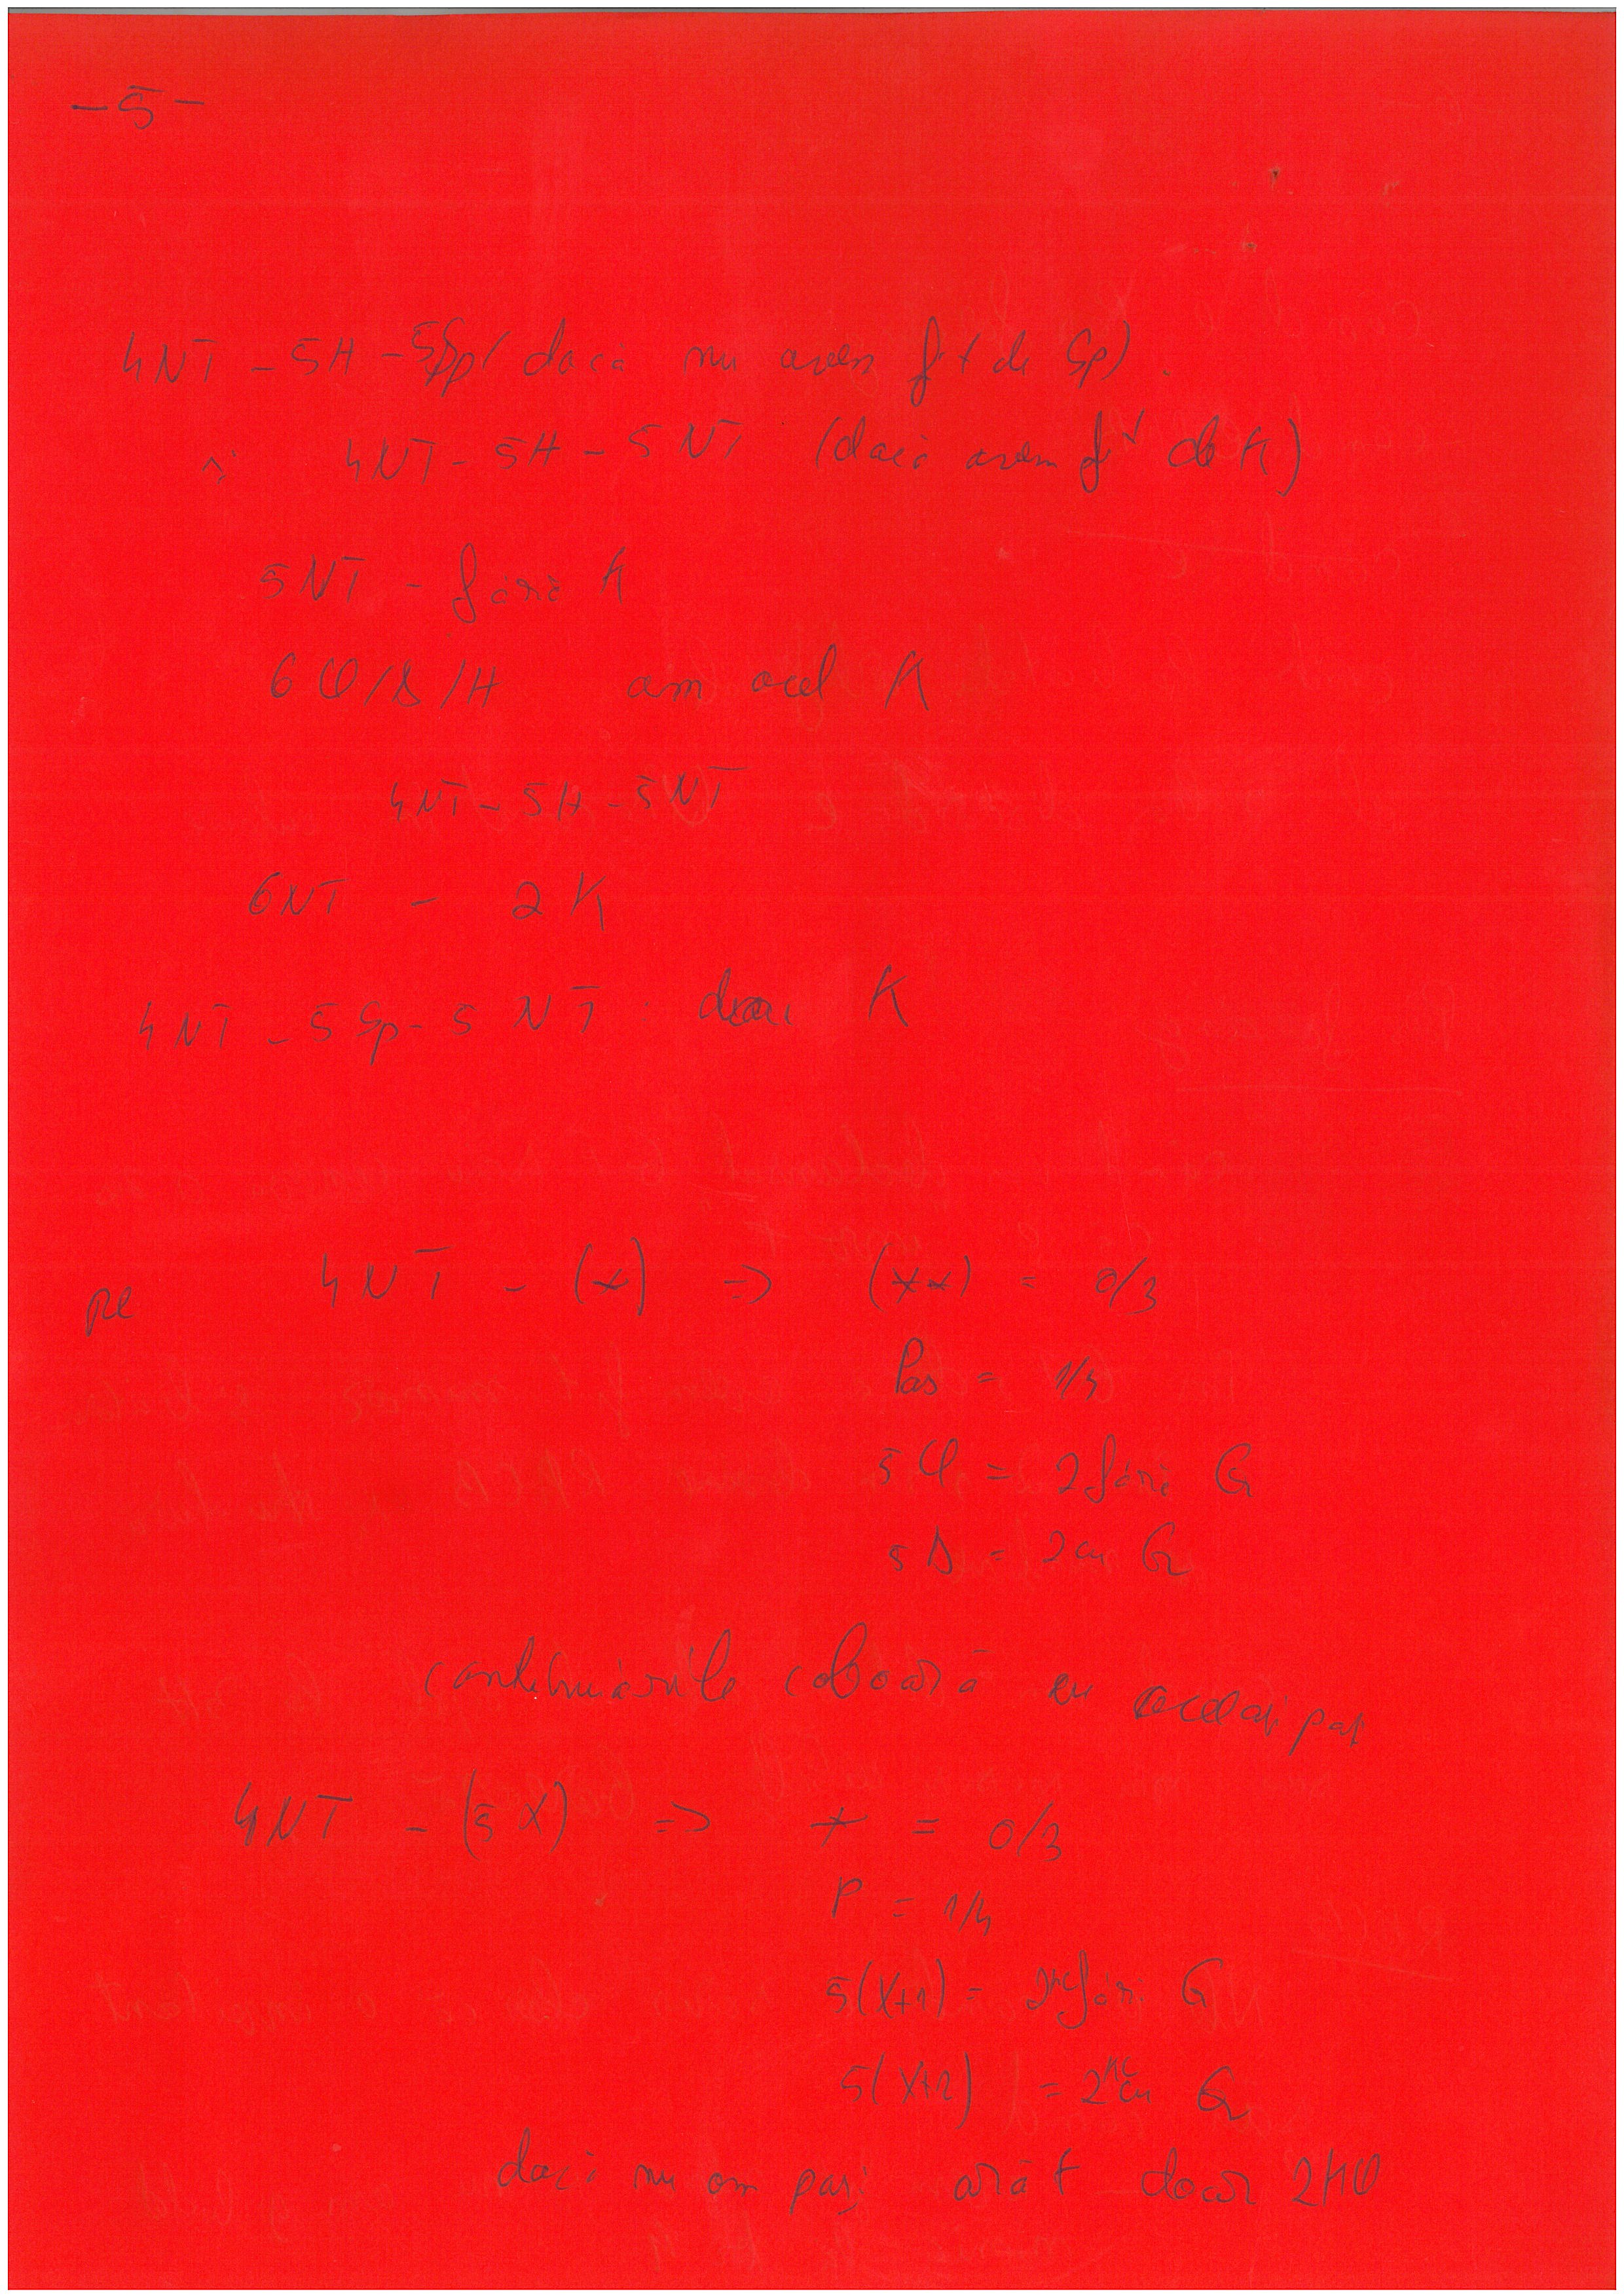 -5-
4NT - 5H - 5Sp (dacă nu avem fit de Sp).
și 4NT - 5H - 5NT (dacă avem fit de K)
5NT - fără K
6Cl/D/H am acel K
4NT - 5H - 5NT
6NT - 2K
4NT - 5Sp - 5NT : doar K
pe 4NT - (x) => (xx) = 0/3
Pas = 1/4
5Cl = 2 fără Q
5D = 2 cu Q
continuările coboară cu același pas
4NT - (5X) => x = 0/3
P = 1/4
5(X+1) = 2KC fără Q
5(X+2) = 2KC cu Q
dacă nu am pași arăt doar 2KC